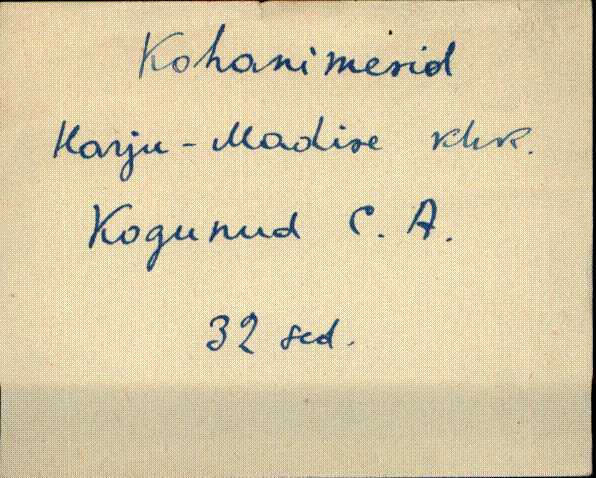 Kohanimesid
Harju-Madise khk.
Kogunud C. A.
32 sed.